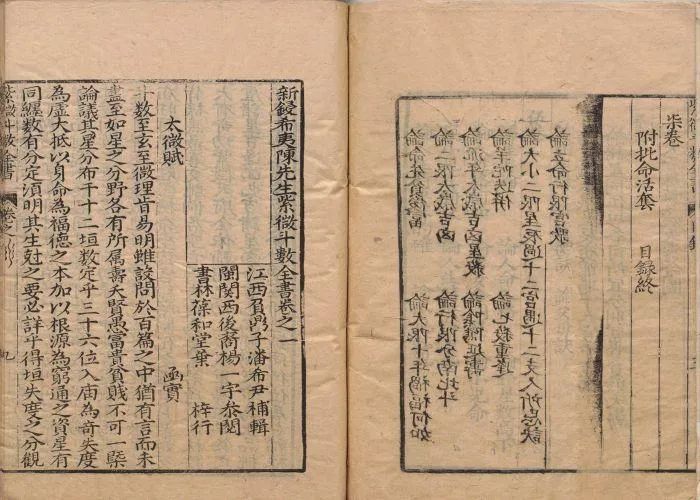 柒卷
附批命活套 目録終
論立命行限宮歌
論大小二限星辰過十二宮遇十二支人所忌訣
論羊陀迭併 論七殺重逢
論流年太歲吉凶星殺 論陰騭延壽
論二限太歲吉凶 論行限分南北斗
論命先貧後富 論大限十年禍福何如
新鋟希夷陳先生紫微斗數全書卷之一
江西負鼎子潘希尹補輯
閩關西後裔楊一宇參閱
書林葆和堂葉 梓行
太微賦
斗數至玄至微理旨易明雖設問於百篇之中猶有言而未
盡至如星之分野各有所屬壽夭賢愚富貴貧賤不可一槩
論議其星分布十二垣數定乎三十六位入廟為奇失度
為虛大抵以身命為福德之本加以根源為窮通之資星有
同纏數有分定須明其生尅之要必詳乎得垣失度之分觀
紫微斗數全書 卷之